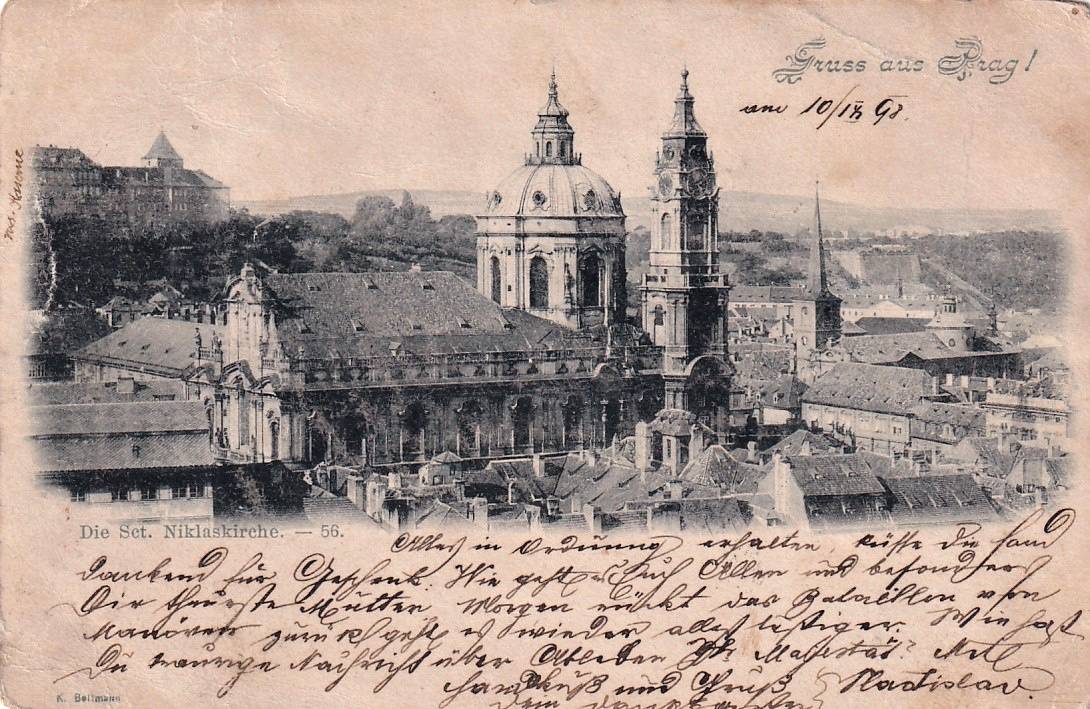 Gruss aus Prag!
am 10/IX 98.
Die Sct. Niklaskirche. — 56.
Alles in Ordnung erhalten, küsse die Hand
dankend für Geschenk. Wie geht es Euch Allen und besonders
Dir theuerste Mutter. Morgen rückt das Bataillon von
Manövern zurück geht es wieder alles lustiger. Wie hast
Du traurige Nachricht über Ableben Ihr. Majestät? Mit
Handkuß und Gruß Vladislav.
Dein dankbarster
K. Bellmann